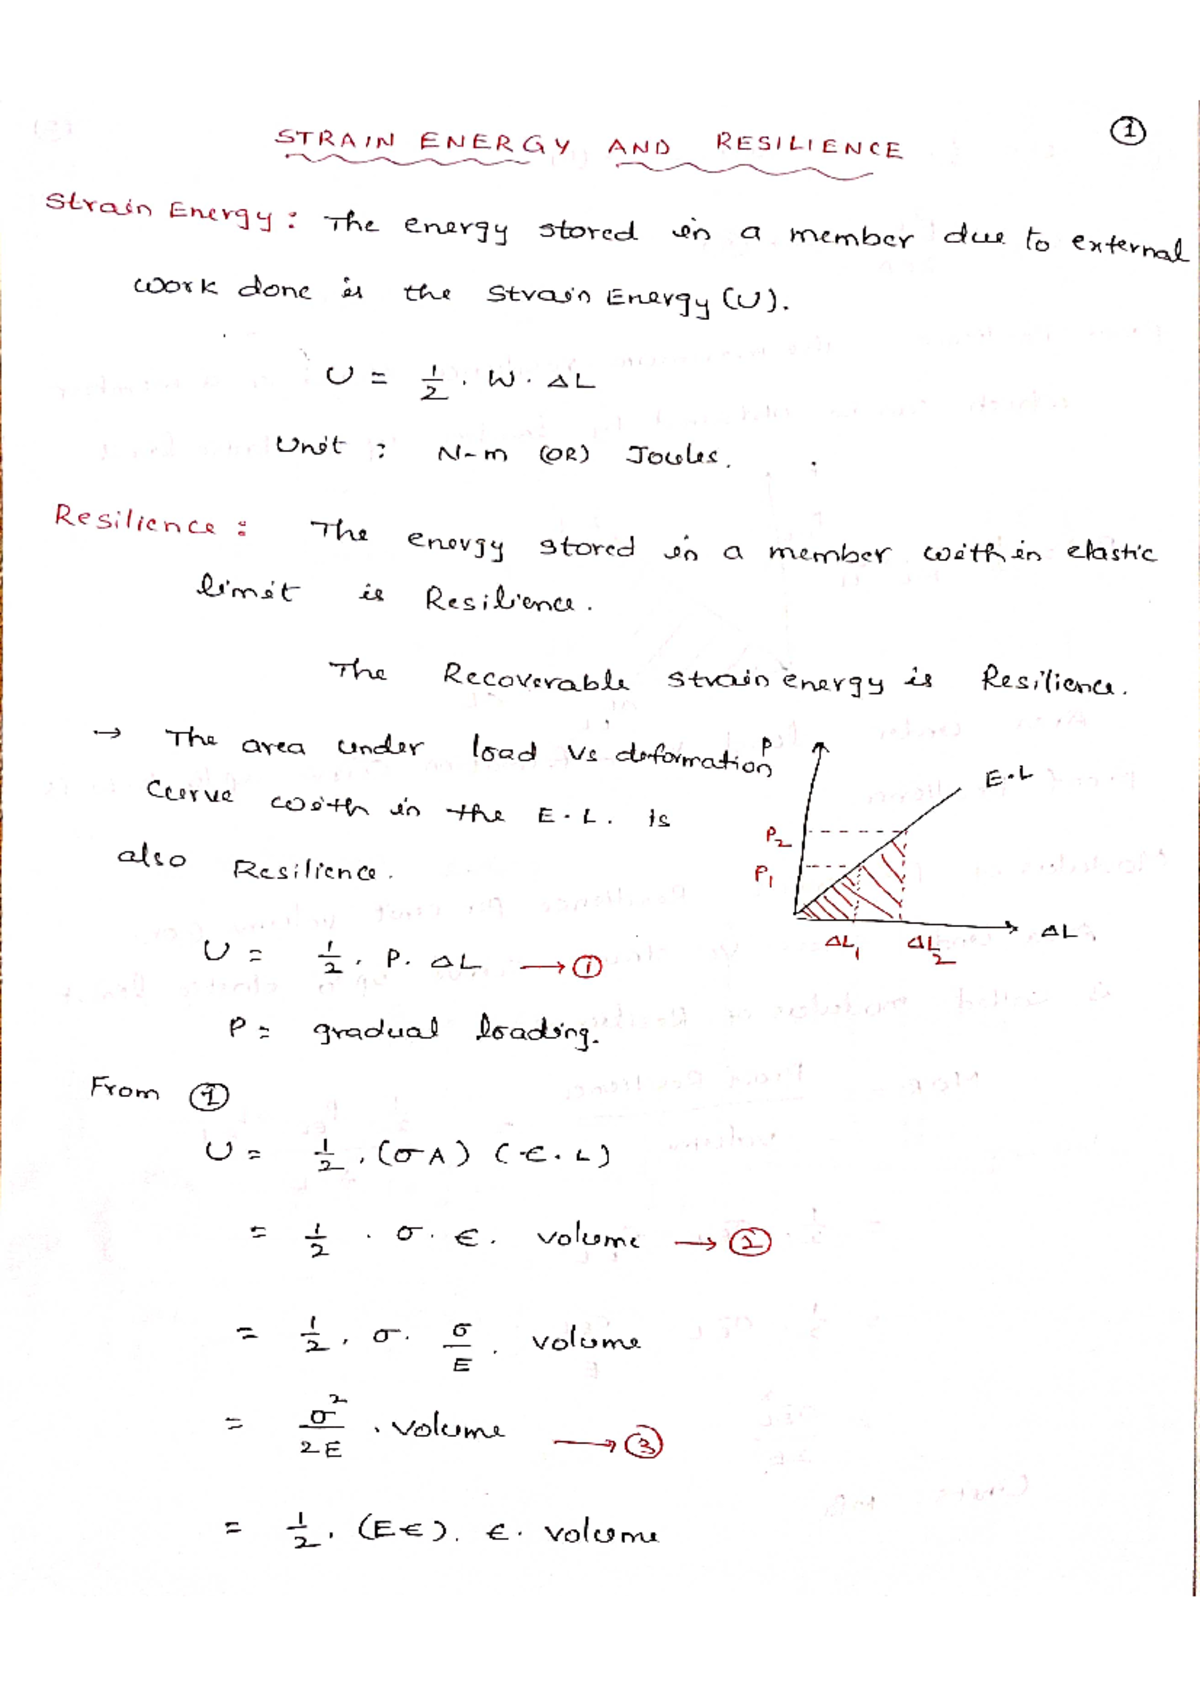 ①
STRAIN ENERGY AND RESILIENCE
Strain Energy : The energy stored in a member due to external
work done is the Strain Energy (U).
U = 1/2 . W . ΔL
Unit : N-m (OR) Joules.
Resilience : The energy stored in a member with in elastic
limit is Resilience.
The Recoverable strain energy is Resilience.
→ The area under load vs deformation
curve with in the E.L. is
also Resilience.
P
E.L
P2
P1
ΔL1 ΔL2
ΔL
U = 1/2 . P . ΔL → ①
P = gradual loading.
From ①
U = 1/2 . (σA) (ϵ . L)
= 1/2 . σ . ϵ . volume → ②
= 1/2 . σ . σ/E . volume
= σ²/2E . volume → ③
= 1/2 . (Eϵ) . ϵ . volume